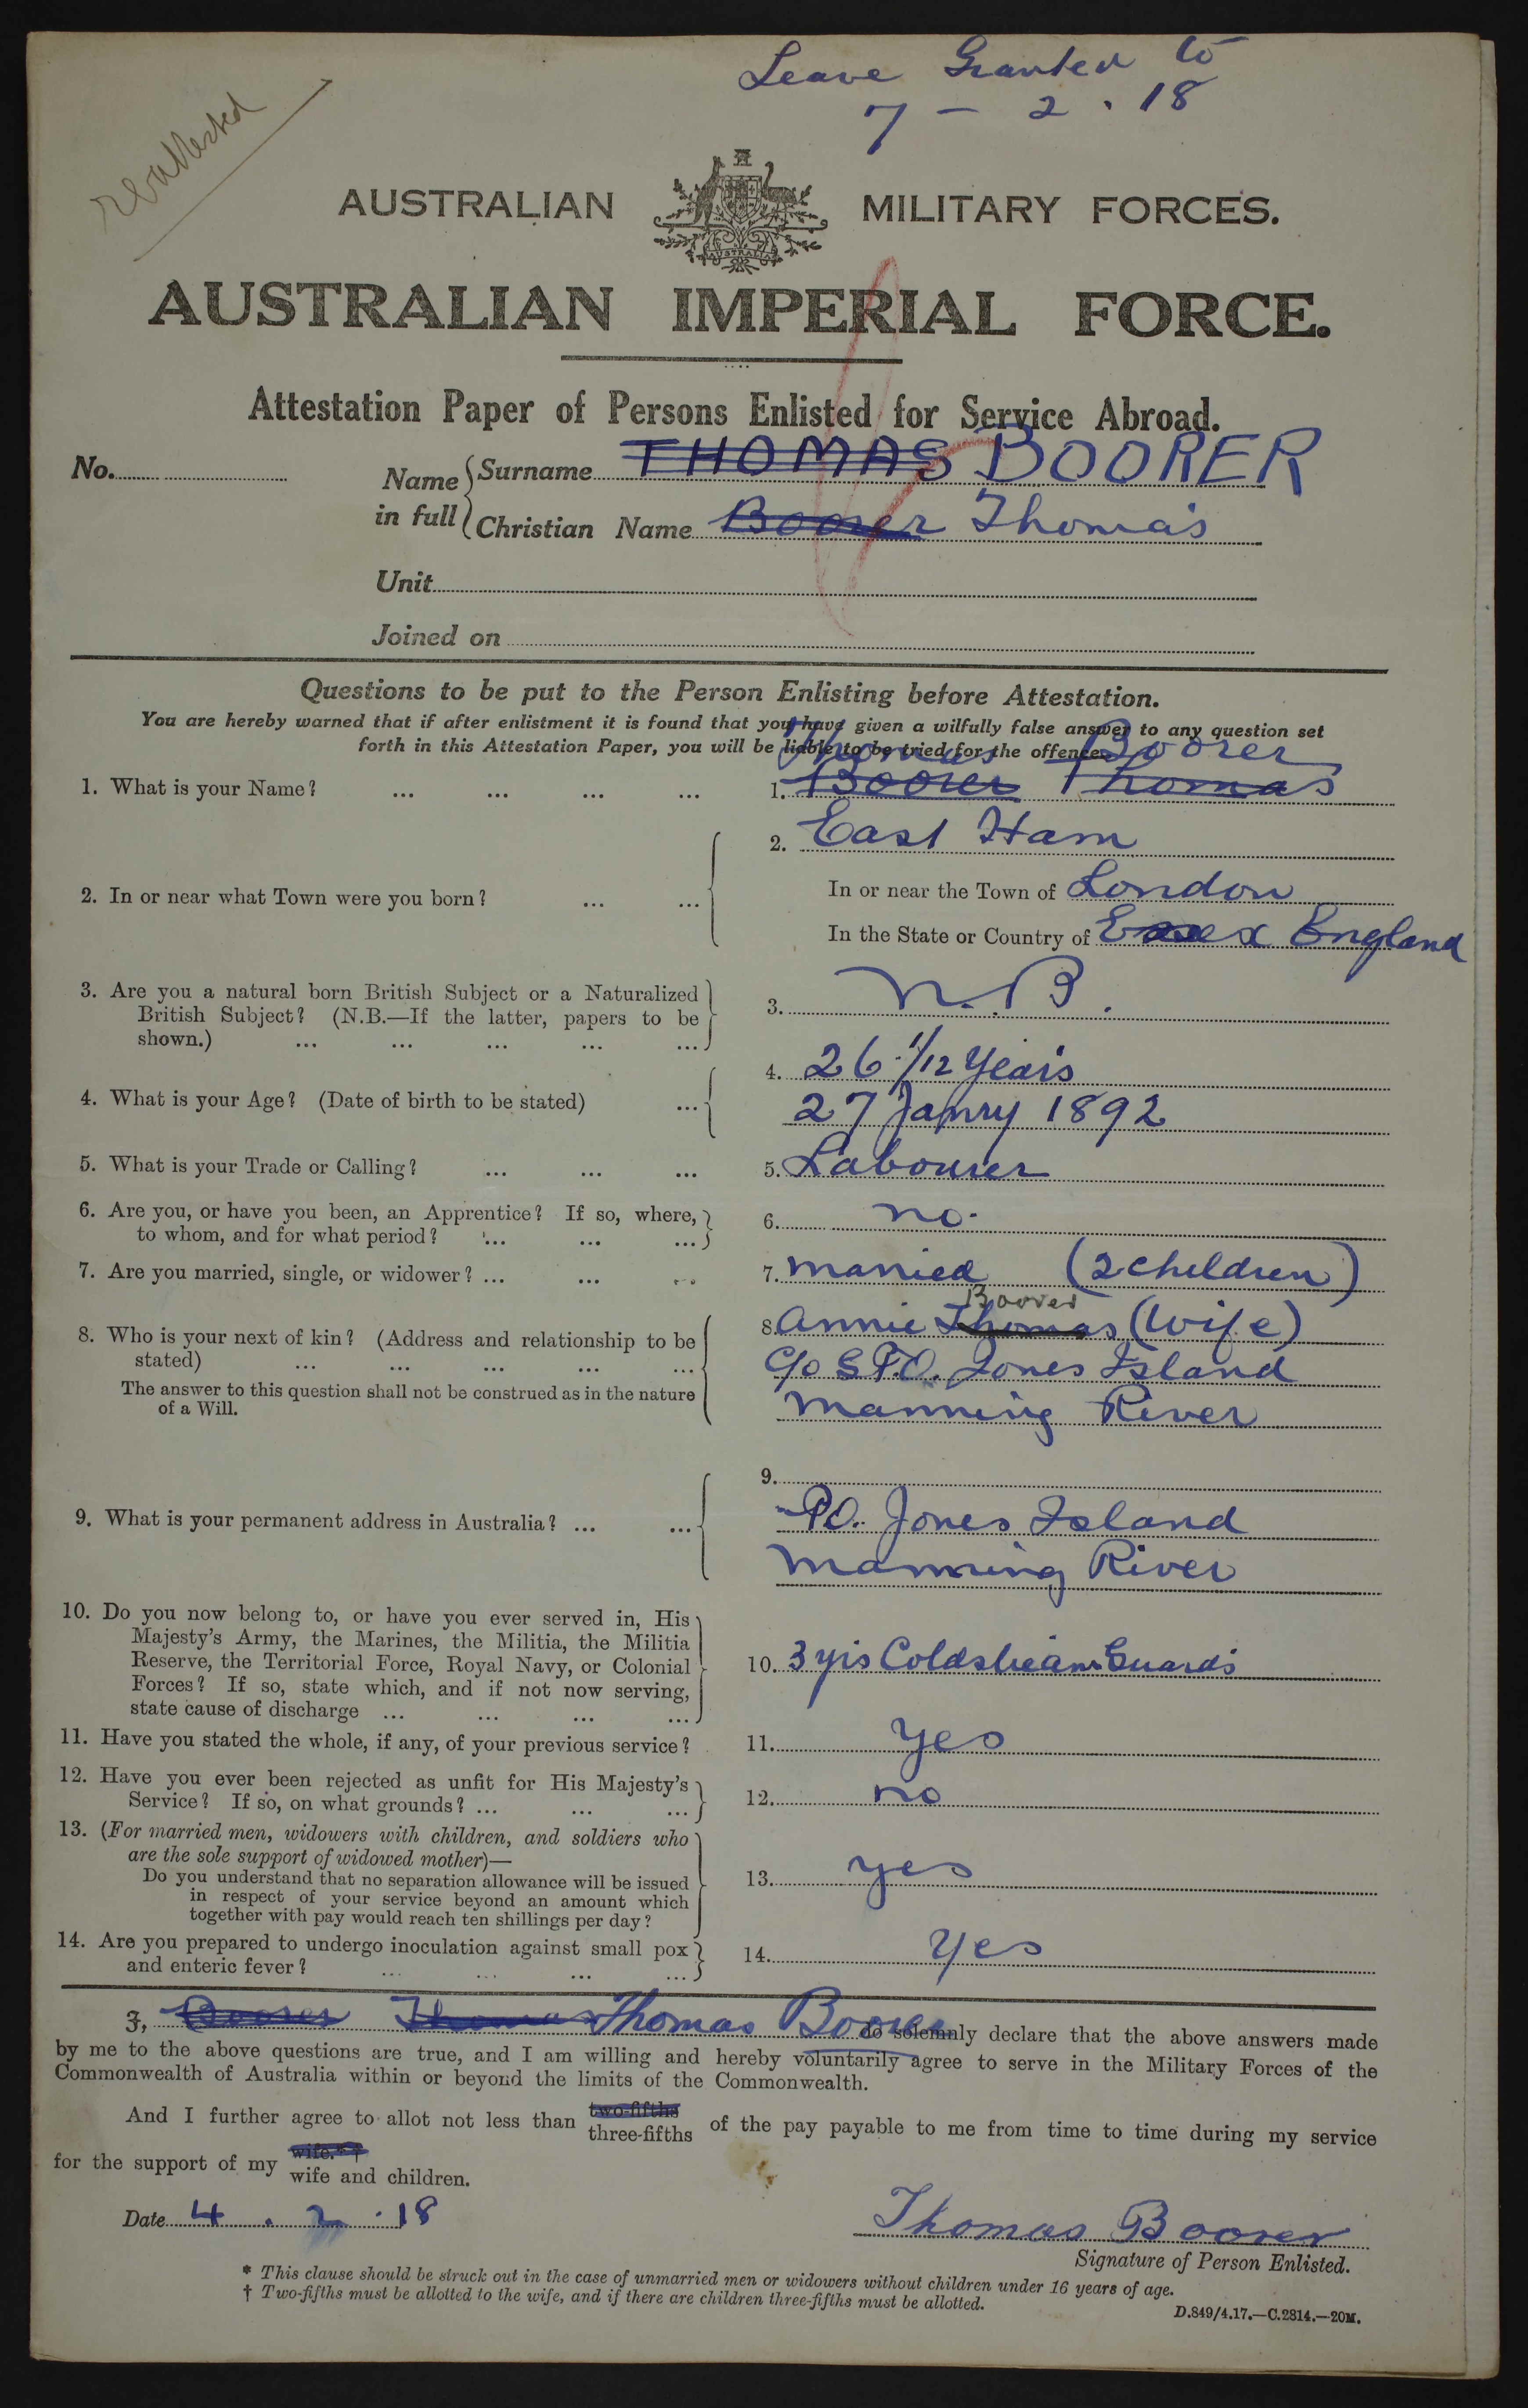 Leave Granted to
7 - 2 . 18
reattested
AUSTRALIAN MILITARY FORCES.
AUSTRALIA
AUSTRALIAN IMPERIAL FORCE.
Attestation Paper of Persons Enlisted for Service Abroad.
No.
Name in full { Surname THOMAS BOORER
Christian Name Boorer Thomas
Unit
Joined on
Questions to be put to the Person Enlisting before Attestation.
You are hereby warned that if after enlistment it is found that you have given a wilfully false answer to any question set
forth in this Attestation Paper, you will be liable to be tried for the offence.
Thomas Boorer
1. What is your Name? ... ... ... ... 1. Boorer Thomas
2. In or near what Town were you born? ... ... 2. East Ham
In or near the Town of London
In the State or Country of Essex England
3. Are you a natural born British Subject or a Naturalized
British Subject? (N.B.—If the latter, papers to be
shown.) ... ... ... ... ... 3. N.B.
4. What is your Age? (Date of birth to be stated) ... 4. 26 1/12 Years
27 Janry 1892
5. What is your Trade or Calling? ... ... ... 5. Labourer
6. Are you, or have you been, an Apprentice? If so, where,
to whom, and for what period? ... ... ... 6. no.
7. Are you married, single, or widower? ... ... ... 7. married (2 children)
Boorer
8. Who is your next of kin? (Address and relationship to be
stated) ... ... ... ... ... 8. Annie Thomas (Wife)
The answer to this question shall not be construed as in the nature
of a Will.
C/o G.P.O. Jones Island
Manning River
9. What is your permanent address in Australia? ... ... 9.
P.O. Jones Island
Manning River
10. Do you now belong to, or have you ever served in, His
Majesty's Army, the Marines, the Militia, the Militia
Reserve, the Territorial Force, Royal Navy, or Colonial
Forces? If so, state which, and if not now serving,
state cause of discharge ... ... ... ... 10. 3 yrs Coldstream Guards
11. Have you stated the whole, if any, of your previous service? 11. Yes
12. Have you ever been rejected as unfit for His Majesty's
Service? If so, on what grounds? ... ... ... 12. no
13. (For married men, widowers with children, and soldiers who
are the sole support of widowed mother)—
Do you understand that no separation allowance will be issued
in respect of your service beyond an amount which
together with pay would reach ten shillings per day? 13. yes
14. Are you prepared to undergo inoculation against small pox
and enteric fever? ... ... ... ... 14. Yes
I, Boorer Thomas Thomas Boorer do solemnly declare that the above answers made
by me to the above questions are true, and I am willing and hereby voluntarily agree to serve in the Military Forces of the
Commonwealth of Australia within or beyond the limits of the Commonwealth.
And I further agree to allot not less than two-fifths three-fifths of the pay payable to me from time to time during my service
for the support of my wife.*† wife and children.
Date 4 . 2 . 18
Thomas Boorer
Signature of Person Enlisted.
* This clause should be struck out in the case of unmarried men or widowers without children under 16 years of age.
† Two-fifths must be allotted to the wife, and if there are children three-fifths must be allotted.
D.849/4.17.—C.2814.—20M.